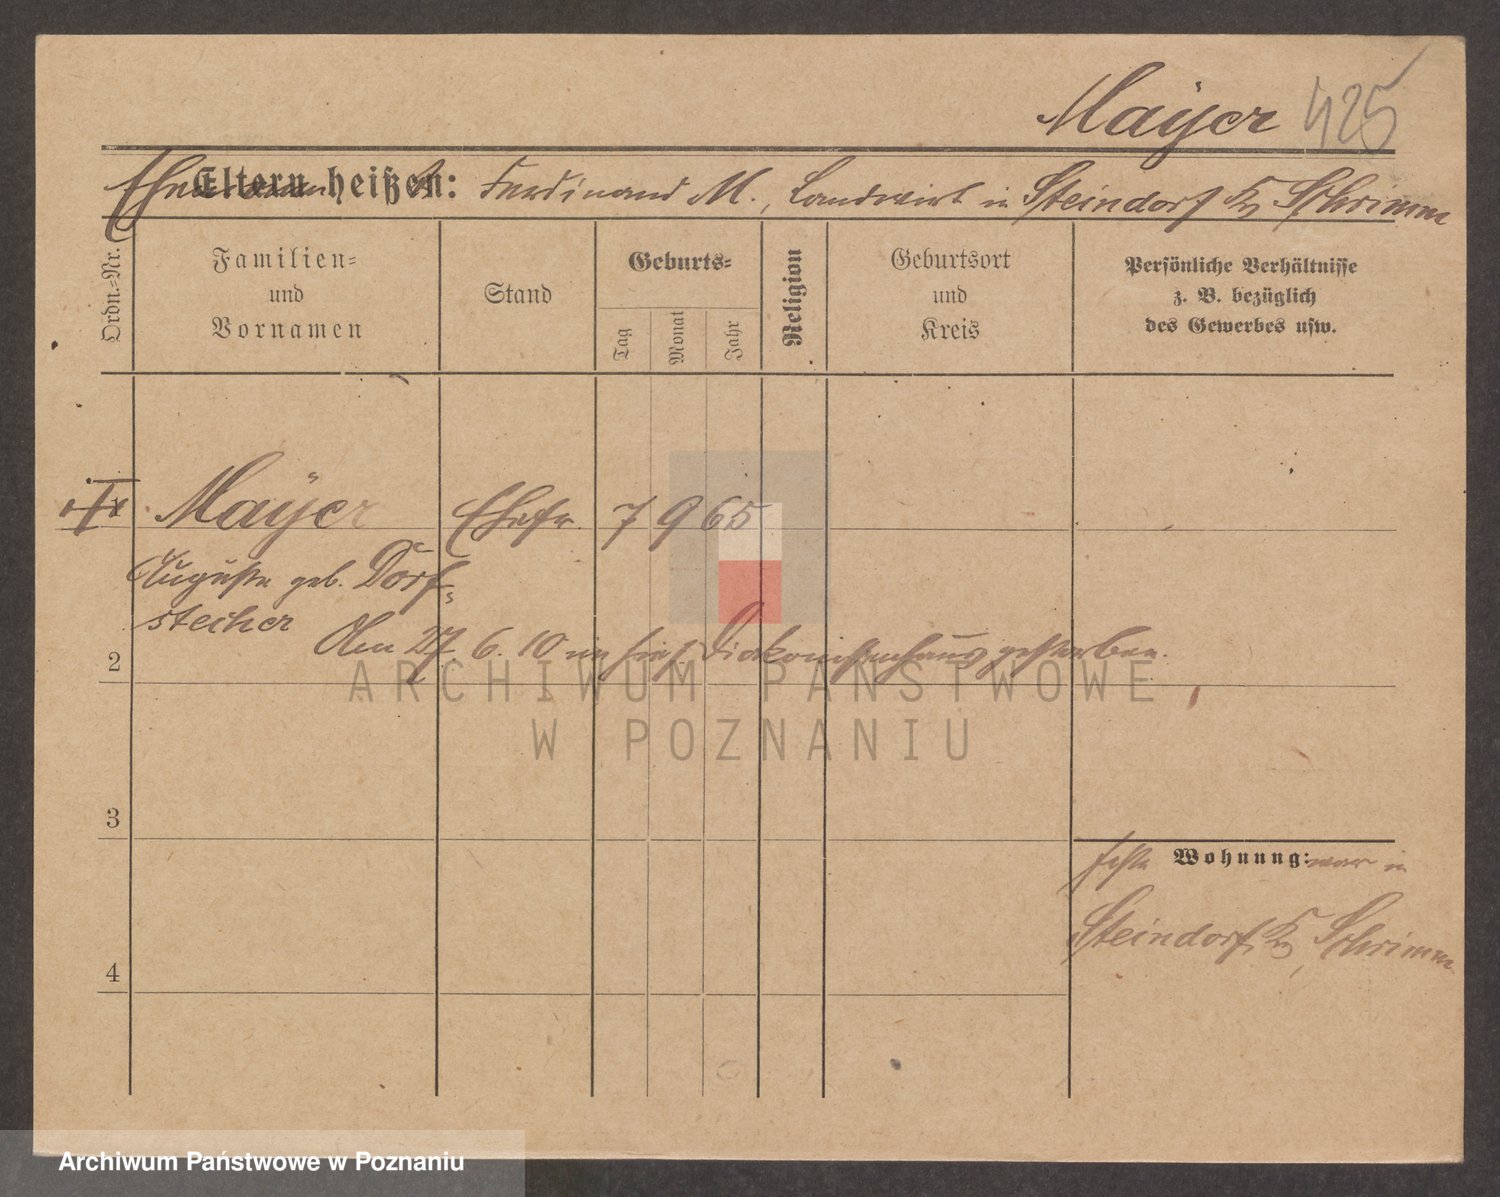 Mayer 425
Ehemann Eltern heißen: Ferdinand M., Landwirt in Steindorf Kr Schrimm
Ordn.-Nr.
Familien-
und
Vornamen
Stand
Geburts-
Tag
Monat
Jahr
Religion
Geburtsort
und
Kreis
Persönliche Verhältnisse
z. B. bezüglich
des Gewerbes usw.
Mayer Ehefr. 7 9 65
Auguste geb. Dorf-
stecher
Am 27. 6. 10 im hies. Diakonissenhaus gestorben.
2
ARCHIWUM PAŃSTWOWE
W POZNANIU
3
feste Wohnung: war in
Steindorf, Kr Schrimm
4
Archiwum Państwowe w Poznaniu